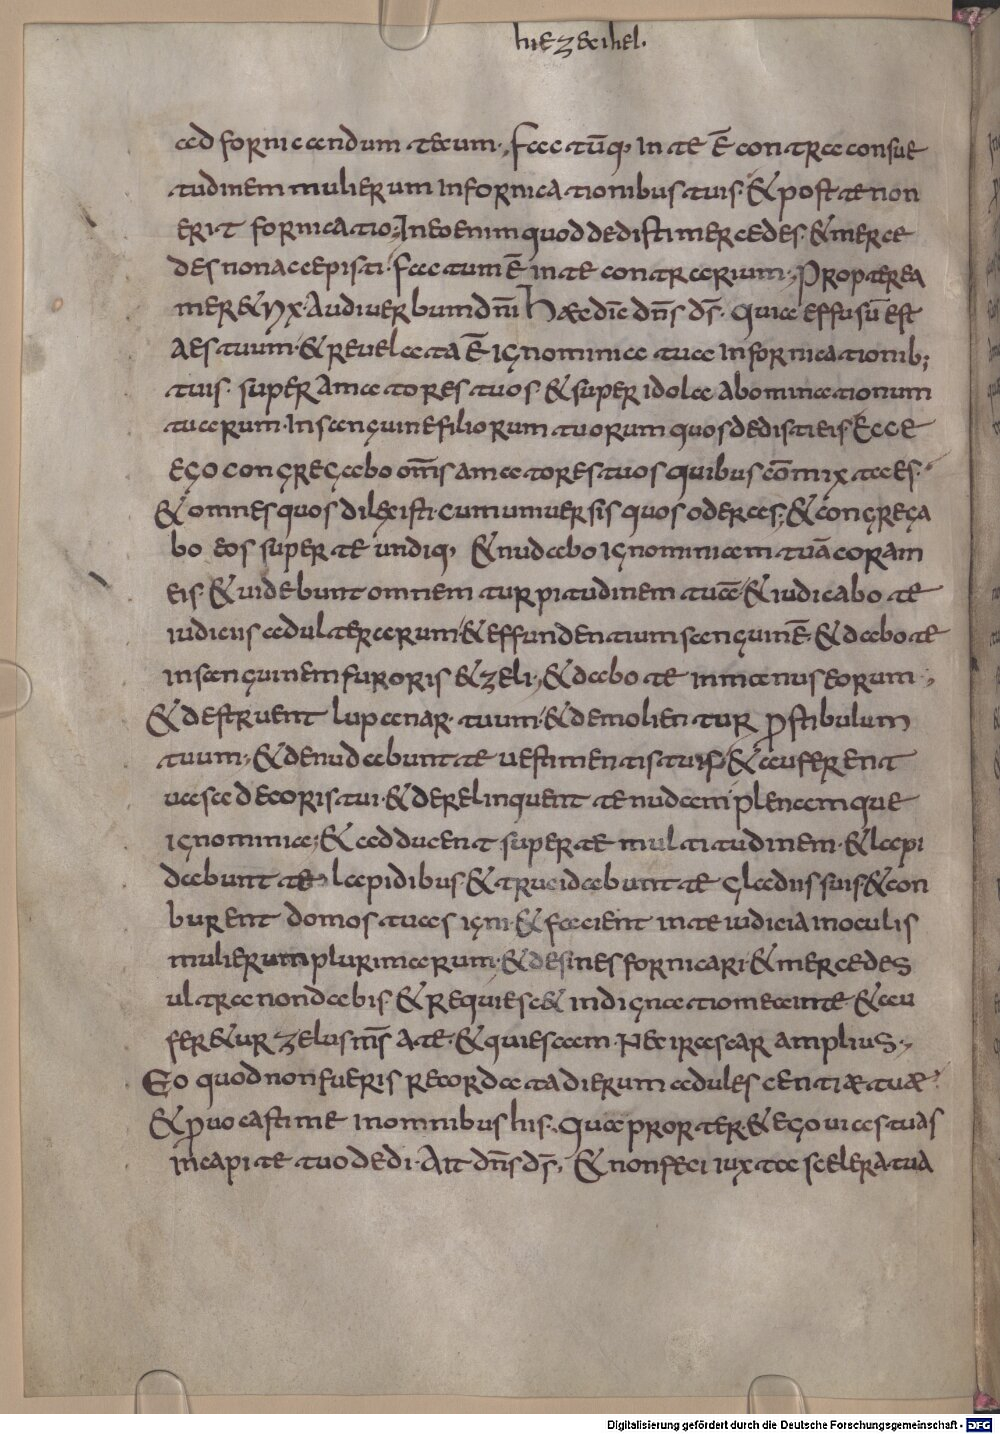 hiezechihel.
ad fornicandum tecum·, factūq; in te ē contra consue
tudinem mulierum in fornicationibus tuis· & post te non
erit fornicatio; In eo enim quod dedisti mercedes· & merce
des non accepisti· factum ē in te contrarium·, Propterea
mer&ryx· Audi uerbum dnī Haec dīc dn̄s ds̄· quia effusū est
aes tuum· & reuelata ē ignominia tua in fornicationib;
tuis· super amatores tuos· & super idola abominationum
tuarum· In sanguine filiorum tuorum quos dedisti eis· Ecce
ego congregabo om̄s amatores tuos quibus com̄ixta es·
& omnes quos dilexisti· cum uniuersis quos oderas; & congrega
bo eos super te undiq; & nudabo ignominiam tuā coram
eis· & uidebunt omnem turpitudinem tuā· & iudicabo te
iudiciis adulterarum· & effundentium sanguinē· & dabo te
in sanguinem furoris & zeli·, & dabo te in manus eorum·,
& destruent lupanar· tuum· & demolientur ꝓstibulum
tuum·, & denudabunt te uestimentis tuis· & auferent
uasa decoris tui· & derelinquent te nudam plenamque
ignominia; & adducent super te multitudinem· & lapi
dabunt te lapidibus· & trucidabunt te gladiis suis· & con
burent domos tuas igni· & facient in te iudicia in oculis
mulierum plurimarum· & desines fornicari· & mercedes
ultra non dabis· & requiesc& indignatio mea in te· & au
fer&ur zelus m̄s a te· & quiescam· Nec irascar amplius·,
Eo quod non fueris recordata dierum adulescentiae tuae·
& ꝓuocasti me in omnibus his·, Quapropter· & ego uias tuas
in capite tuo dedi· Ait dn̄s ds̄· & non feci iuxta scelera tua
Digitalisierung gefördert durch die Deutsche Forschungsgemeinschaft - DFG